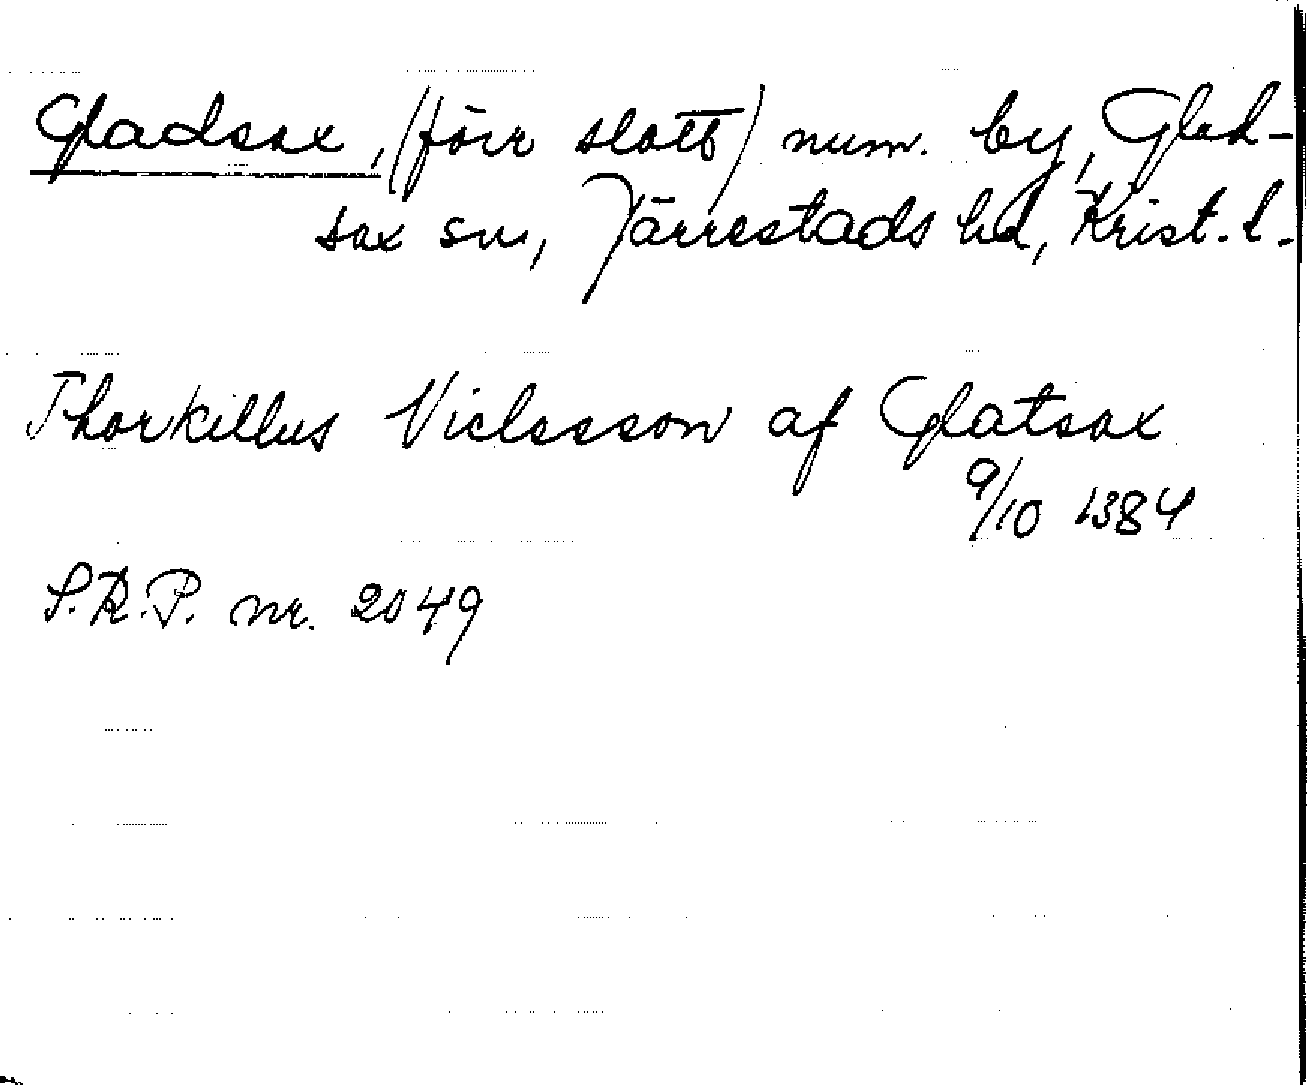 Gladsax, (förr slott) num. by, Glad-
sax sn, Järrestads hd, Krist. l.
Thorkillus Niclesson af Glatsax
9/10 1384
S.R.P. nr. 2049